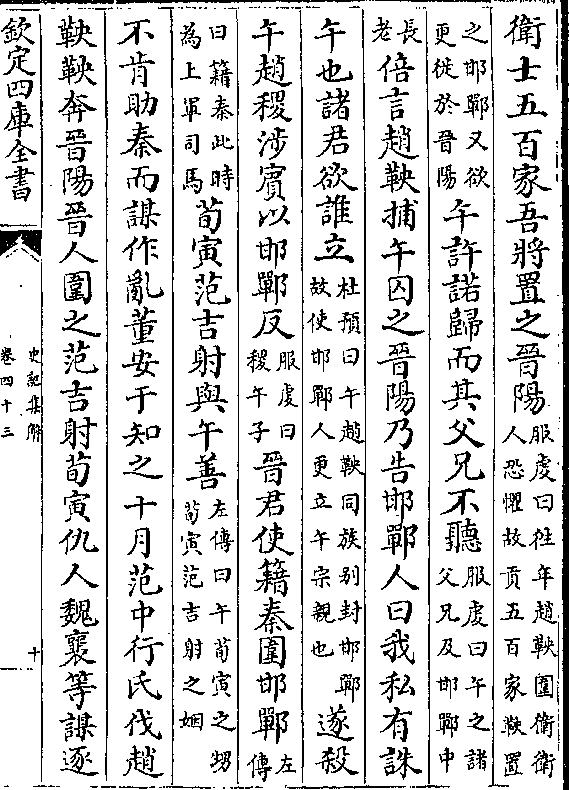 衛士五百家吾將置之晉陽服虔曰徃年趙鞅圍衛衛人恐懼故貢五百家鞅置
之邯鄲又欲更徙於晉陽午許諾歸而其父兄不聽服虔曰午之諸父兄及邯鄲中
長老倍言趙鞅捕午囚之晉陽乃告邯鄲人曰我私有誅
午也諸君欲誰立杜預曰午趙鞅同族别封邯鄲故使邯鄲人更立午宗親也遂殺
午趙稷涉賔以邯鄲反服虔曰稷午子晉君使籍秦圍邯鄲左傳
曰籍秦此時為上軍司馬荀寅范吉射與午善左傳曰午荀寅之甥荀寅范吉射之姻
不肯助秦而謀作亂董安于知之十月范中行氏伐趙
鞅鞅奔晉陽晉人圍之范吉射荀寅仇人魏襄等謀逐
欽定四庫全書
史記集解
卷四十三
十